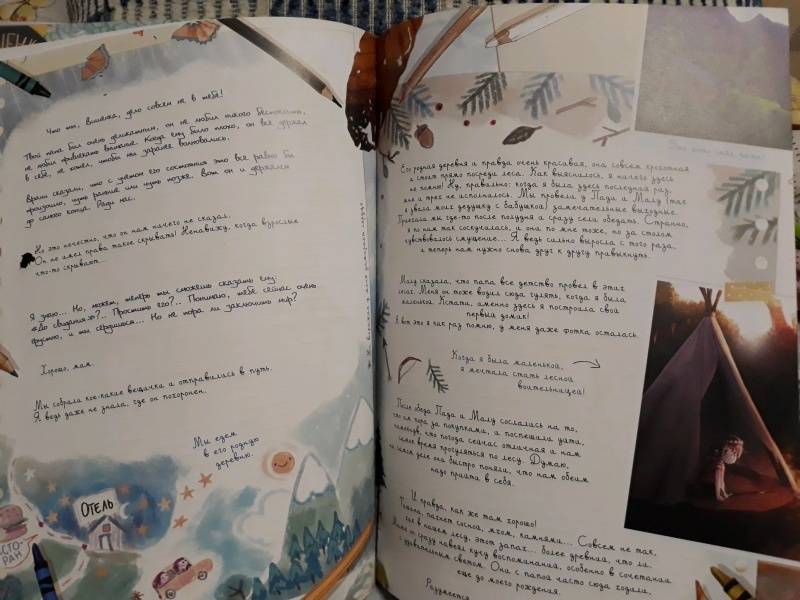 Что ты, вишенка, дело совсем не в тебе!
Твой папа был очень деликатным, он не любил такого беспокоить,
не любил привлекать внимание. Когда ему было плохо, он всё держал
в себе, не хотел, чтобы мы заранее волновались.
Врачи сказали, что с учётом его состояния это всё равно бы
произошло, чуть раньше или чуть позже. Вот он и держался
до самого конца. Ради нас.
Но это нечестно, что он нам ничего не сказал.
Он не имел права такое скрывать! Ненавижу, когда взрослые
что-то скрывают...
Я знаю... Но, может, теперь ты сможешь сказать ему:
«До свидания»?.. Простить его?.. Понимаю, тебе сейчас очень
грустно, и ты сердишься... Но не пора ли заключить мир?
Хорошо, мам.
Мы собрали кое-какие вещички и отправились в путь.
Я ведь даже не знала, где он похоронен.
Мы едем
в его родную
деревню.
ОТЕЛЬ
СТО-
РАН
Его родная деревня и правда очень красивая, она совсем крохотная
и стоит прямо посреди леса. Как выяснилось, я ничего здесь
не помню! Ну, правильно: когда я была здесь последний раз,
мне и трёх не исполнилось. Мы провели у Пади и Малу (так
я звала моих дедушку с бабушкой) замечательные выходные.
Приехали мы где-то после полудня и сразу сели обедать. Странно,
я по ним так соскучилась, и они по мне тоже, но за столом
чувствовалось смущение... Я ведь сильно выросла с того раза,
и теперь нам нужно снова друг к другу привыкнуть.
Малу сказала, что папа всё детство провёл в этих
лесах. Меня он тоже водил сюда гулять, когда я была
маленькой. Кстати, именно здесь я построила свой
первый домик!
Я вот это я как раз помню, у меня даже фотка осталась.
Когда я была маленькой,
я мечтала стать лесной
воительницей!
После обеда Пади и Малу сослались на то,
что им пора за покупками, и поспешили уйти,
что погода сейчас отличная и нам
самое время прогуляться по лесу. Думаю,
на самом деле они быстро поняли, что нам обеим
надо прийти в себя.
И правда, как же там хорошо!
Тишина, пахнет сосной, мхом, камнями... Совсем не так,
как в нашем лесу, этот запах... более древний, что ли.
Меня он сразу навеял кучу воспоминаний, особенно в сочетании
с удивительным светом. Они с папой часто сюда ходили,
ещё до моего рождения.
Разумеется